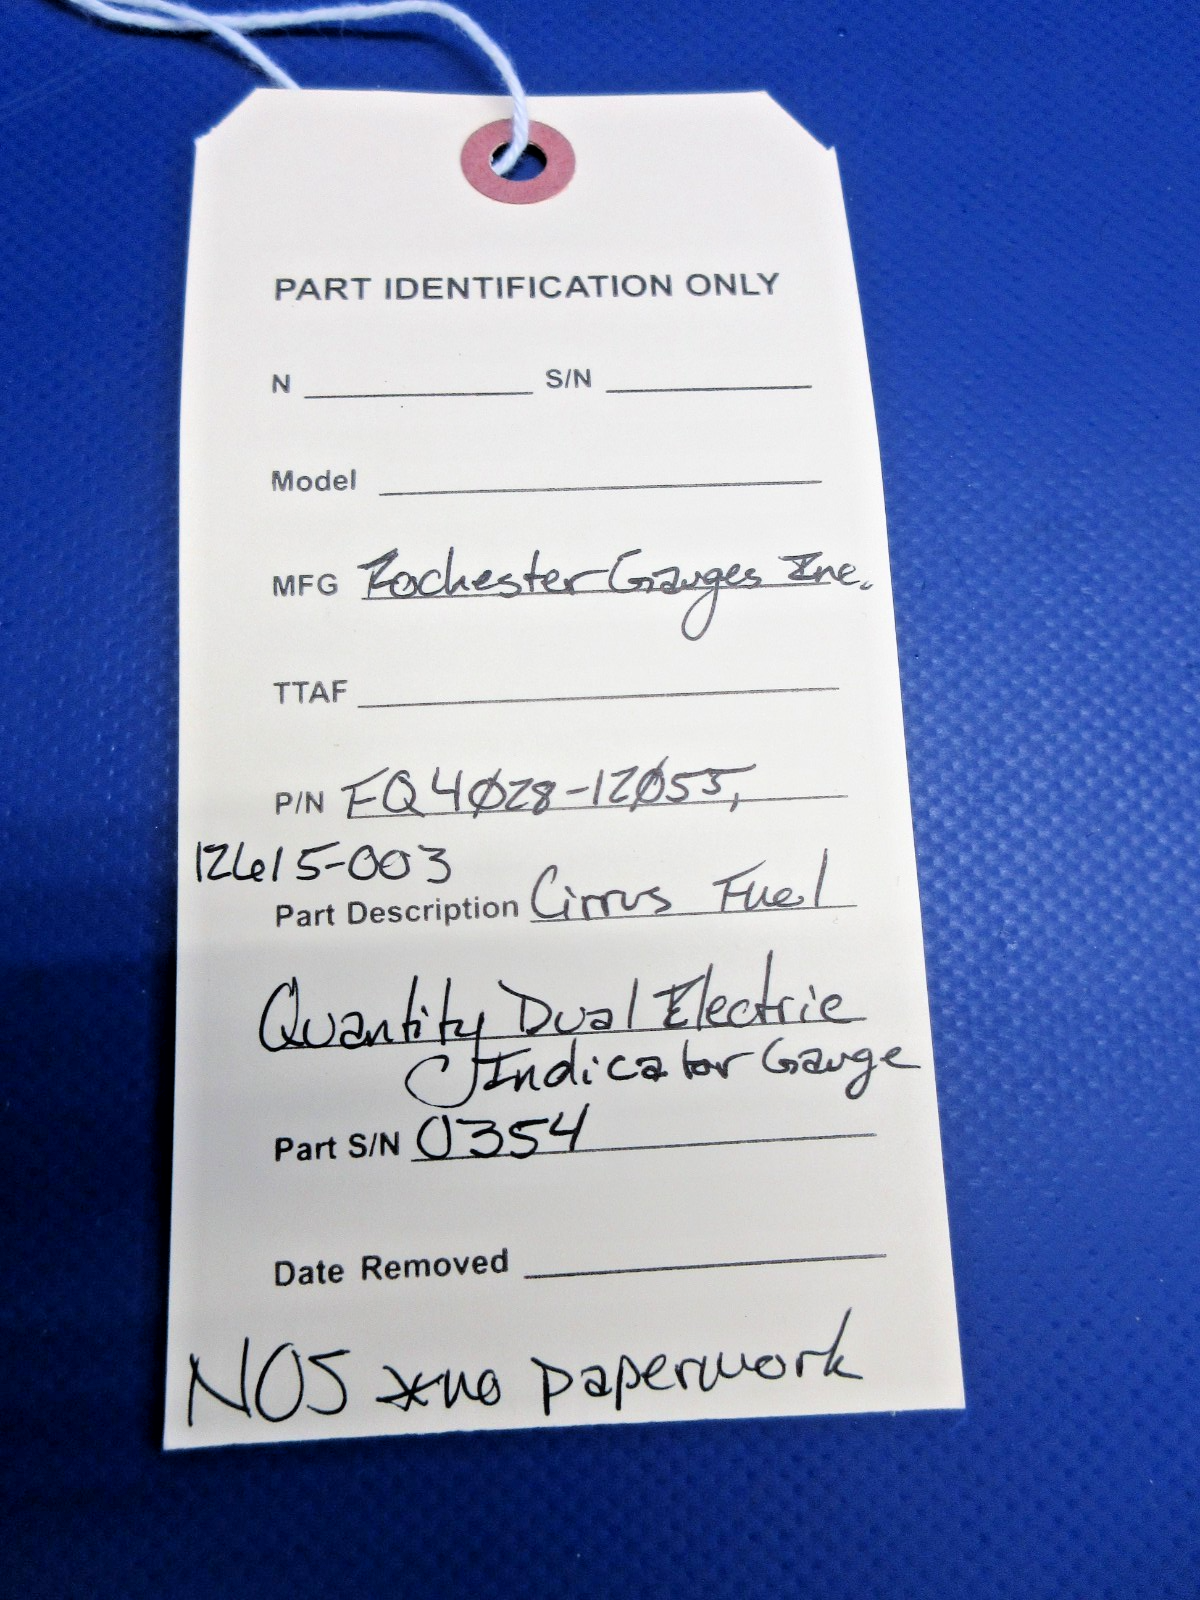 PART IDENTIFICATION ONLY
N S/N
Model
MFG Rochester Gauges Inc.
TTAF
P/N FQ4Ø28-12Ø55,
12615-003
Part Description Cirrus Fuel
Quantity Dual Electric
Indicator Gauge
Part S/N 0354
Date Removed
NOS *no paperwork